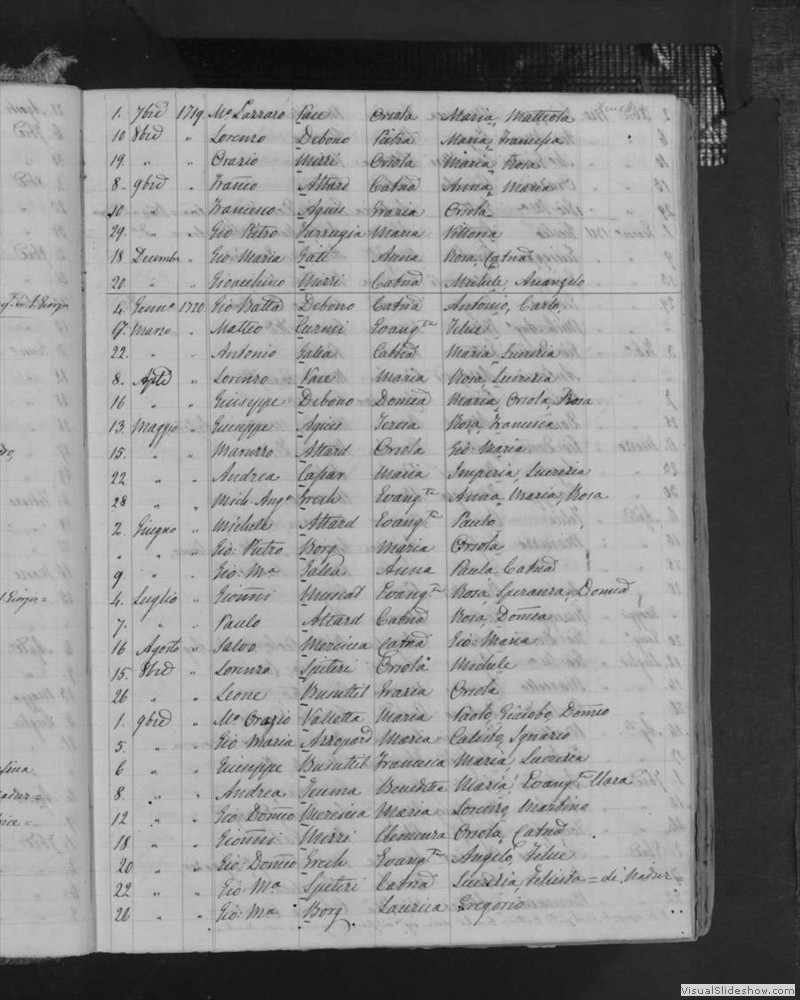 1. 7bre 1719 Mº Lazzaro Pace Orsola Maria, Matteola
10 8bre " Lorenzo Debono Pietra Maria, Francesca
19. " " Orazio Mizzi Orsola Maria, Rosa
8. 9bre " Franco Attard Catna Anna, Maria
10 " " Francesco Agius Grazia Orsola
29. " " Gio Pietro Farrugia Maria Vittoria
18 Decembr " Gio Maria Anna Rosa, Catna
20 " " Gioacchino Mizzi Catna Michele, Arcangelo
4. Gennº 1720 Gio Batta Debono Catna Antonio, Carlo
Marzo " Matteo Curmi Evangta Felice
22. " " Antonio Galea Catna Maria, Lucrezia
8. Aple " Lorenzo Pace Maria Rosa, Lucrezia
16 " " Giuseppe Debono Domca Maria, Orsola, Rosa
13. Maggio " Giuseppe Agius Teresa Rosa, Francesca
15. " " Attard Orsola Gio Maria
22 " " Andrea Caspar Maria Imperia, Lucrezia
28 " " Mich. Angº Grech Evangta Anna, Maria, Rosa
2. Giugno " Michele Attard Evangta Paulo
" " " Gio: Pietro Borg Maria Orsola
9. " " Gio: Mª Galea Anna Paula, Catna
4. Luglio " Gioanni Muscat Evangta Rosa, Speranza, Domca
7. " " Paulo Attard Catna Rosa, Domca
16 Agosto " Salvo Mercieca Catna Gio Maria
15. 8bre " Lorenzo Spiteri Orsola Michele
26 " " Leone Busuttil Grazia Orsola
1. 9bre " Mº Orazio Vallotta Maria Paolo, Giacobo, Domco
5. " " Gio Maria Azzopard Maria Calisto, Ignazio
6 " " Giuseppe Busuttil Francesca Maria Lucrezia
8 " " Andrea Benedetta Maria, Evangta, Clara
12 " " Gio Domco Mercieca Maria Lorenzo, Martino
18 " " Gioanni Mizzi Clemenza Orsola, Catna
20 " " Gio: Domco Grech Evangta Angelo, Felice
22 " " Gio: Mª Spiteri Catna Lucrezia Felicita = di Nadur =
26 " " Gio: Mª Borg Laurica Gregorio
VisualSlideshow.com